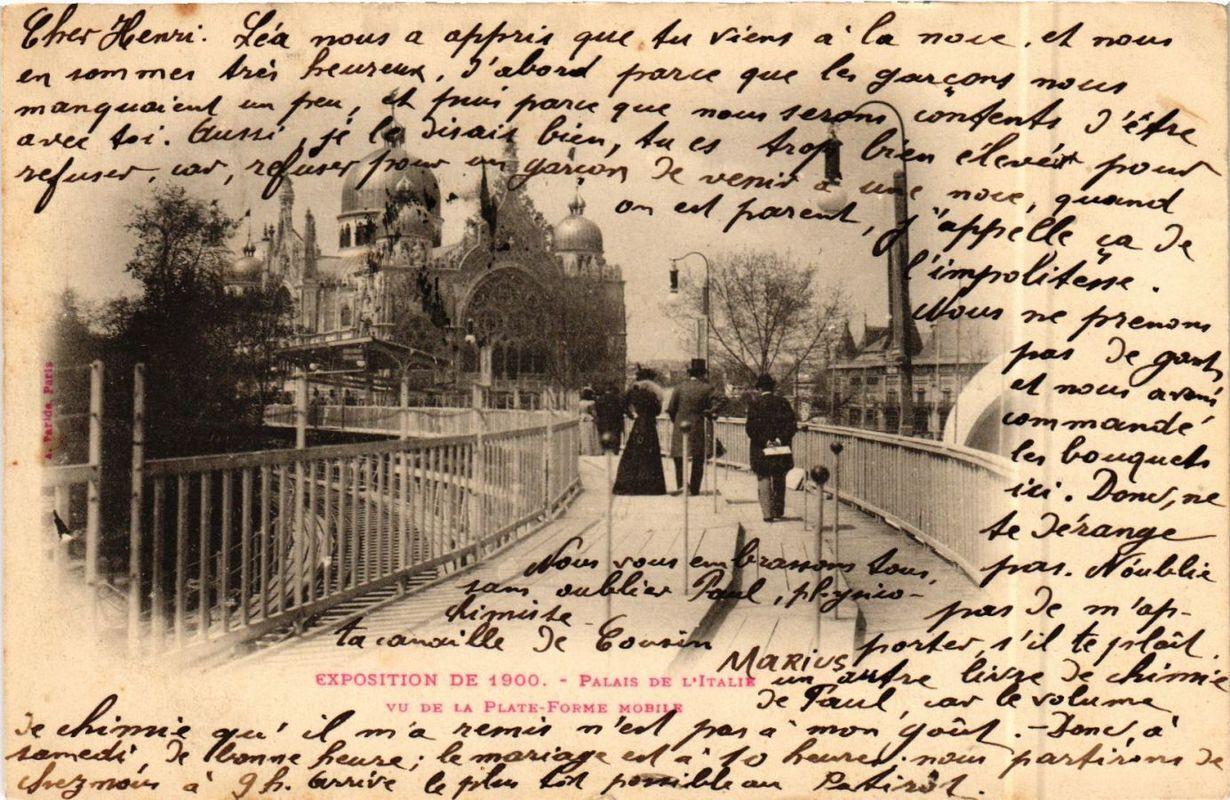 Cher Henri. Léa nous a appris que tu viens à la noce, et nous
en sommes très heureux, d'abord parce que les garçons nous
manquaient un peu, et puis parce que nous serons contents d'être
avec toi. Aussi, je le disais bien, tu es trop bien élevé pour
refuser, car, refuser pour un garçon de venir à une noce, quand
on est parent, j'appelle ça de
l'impolitesse.
Nous ne prenons
pas de gants
et nous avons
commandé
les bouquets
ici. Donc, ne
te dérange
pas. N'oublie
pas de m'ap-
porter, s'il te plaît,
un autre livre de chimie
de Paul, car le volume
de chimie qu'il m'a remis n'est pas à mon goût. - Donc, à
samedi de bonne heure; le mariage est à 10 heures; nous partirons de
chez nous à 9h. arrive le plus tôt possible au
Nous vous embrassons tous,
sans oublier Paul, physico-
chimiste
ta canaille de Cousin
MARIUS
A. Faride, Paris
EXPOSITION DE 1900. - PALAIS DE L'ITALIE
VU DE LA PLATE-FORME MOBILE